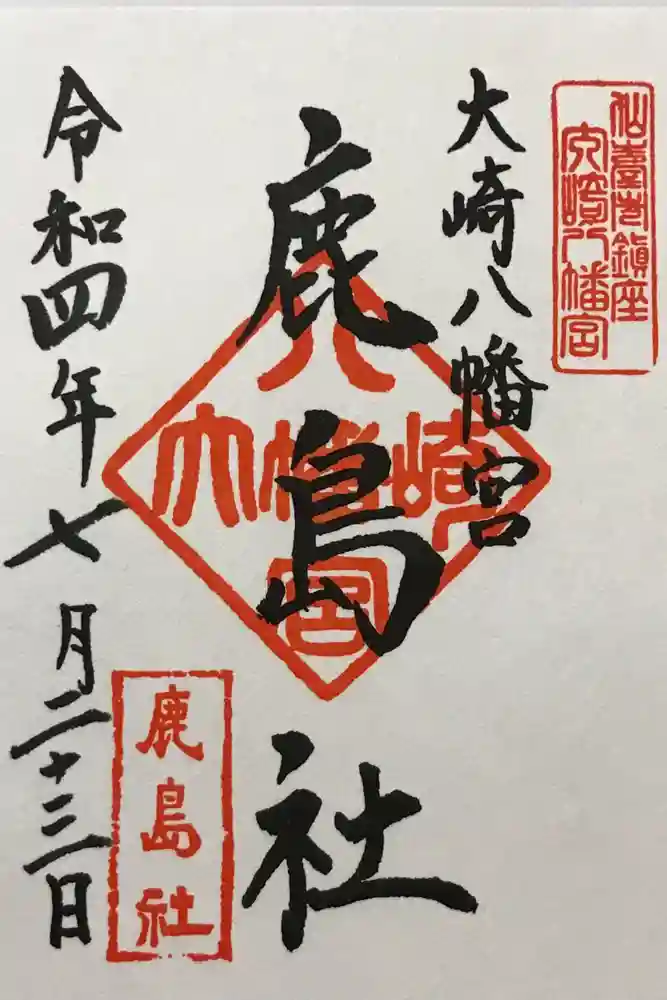 仙臺市鎮座
大崎八幡宮
大崎八幡宮
鹿島社
八
大幡崎
宮
鹿島社
令和四年七月二十三日